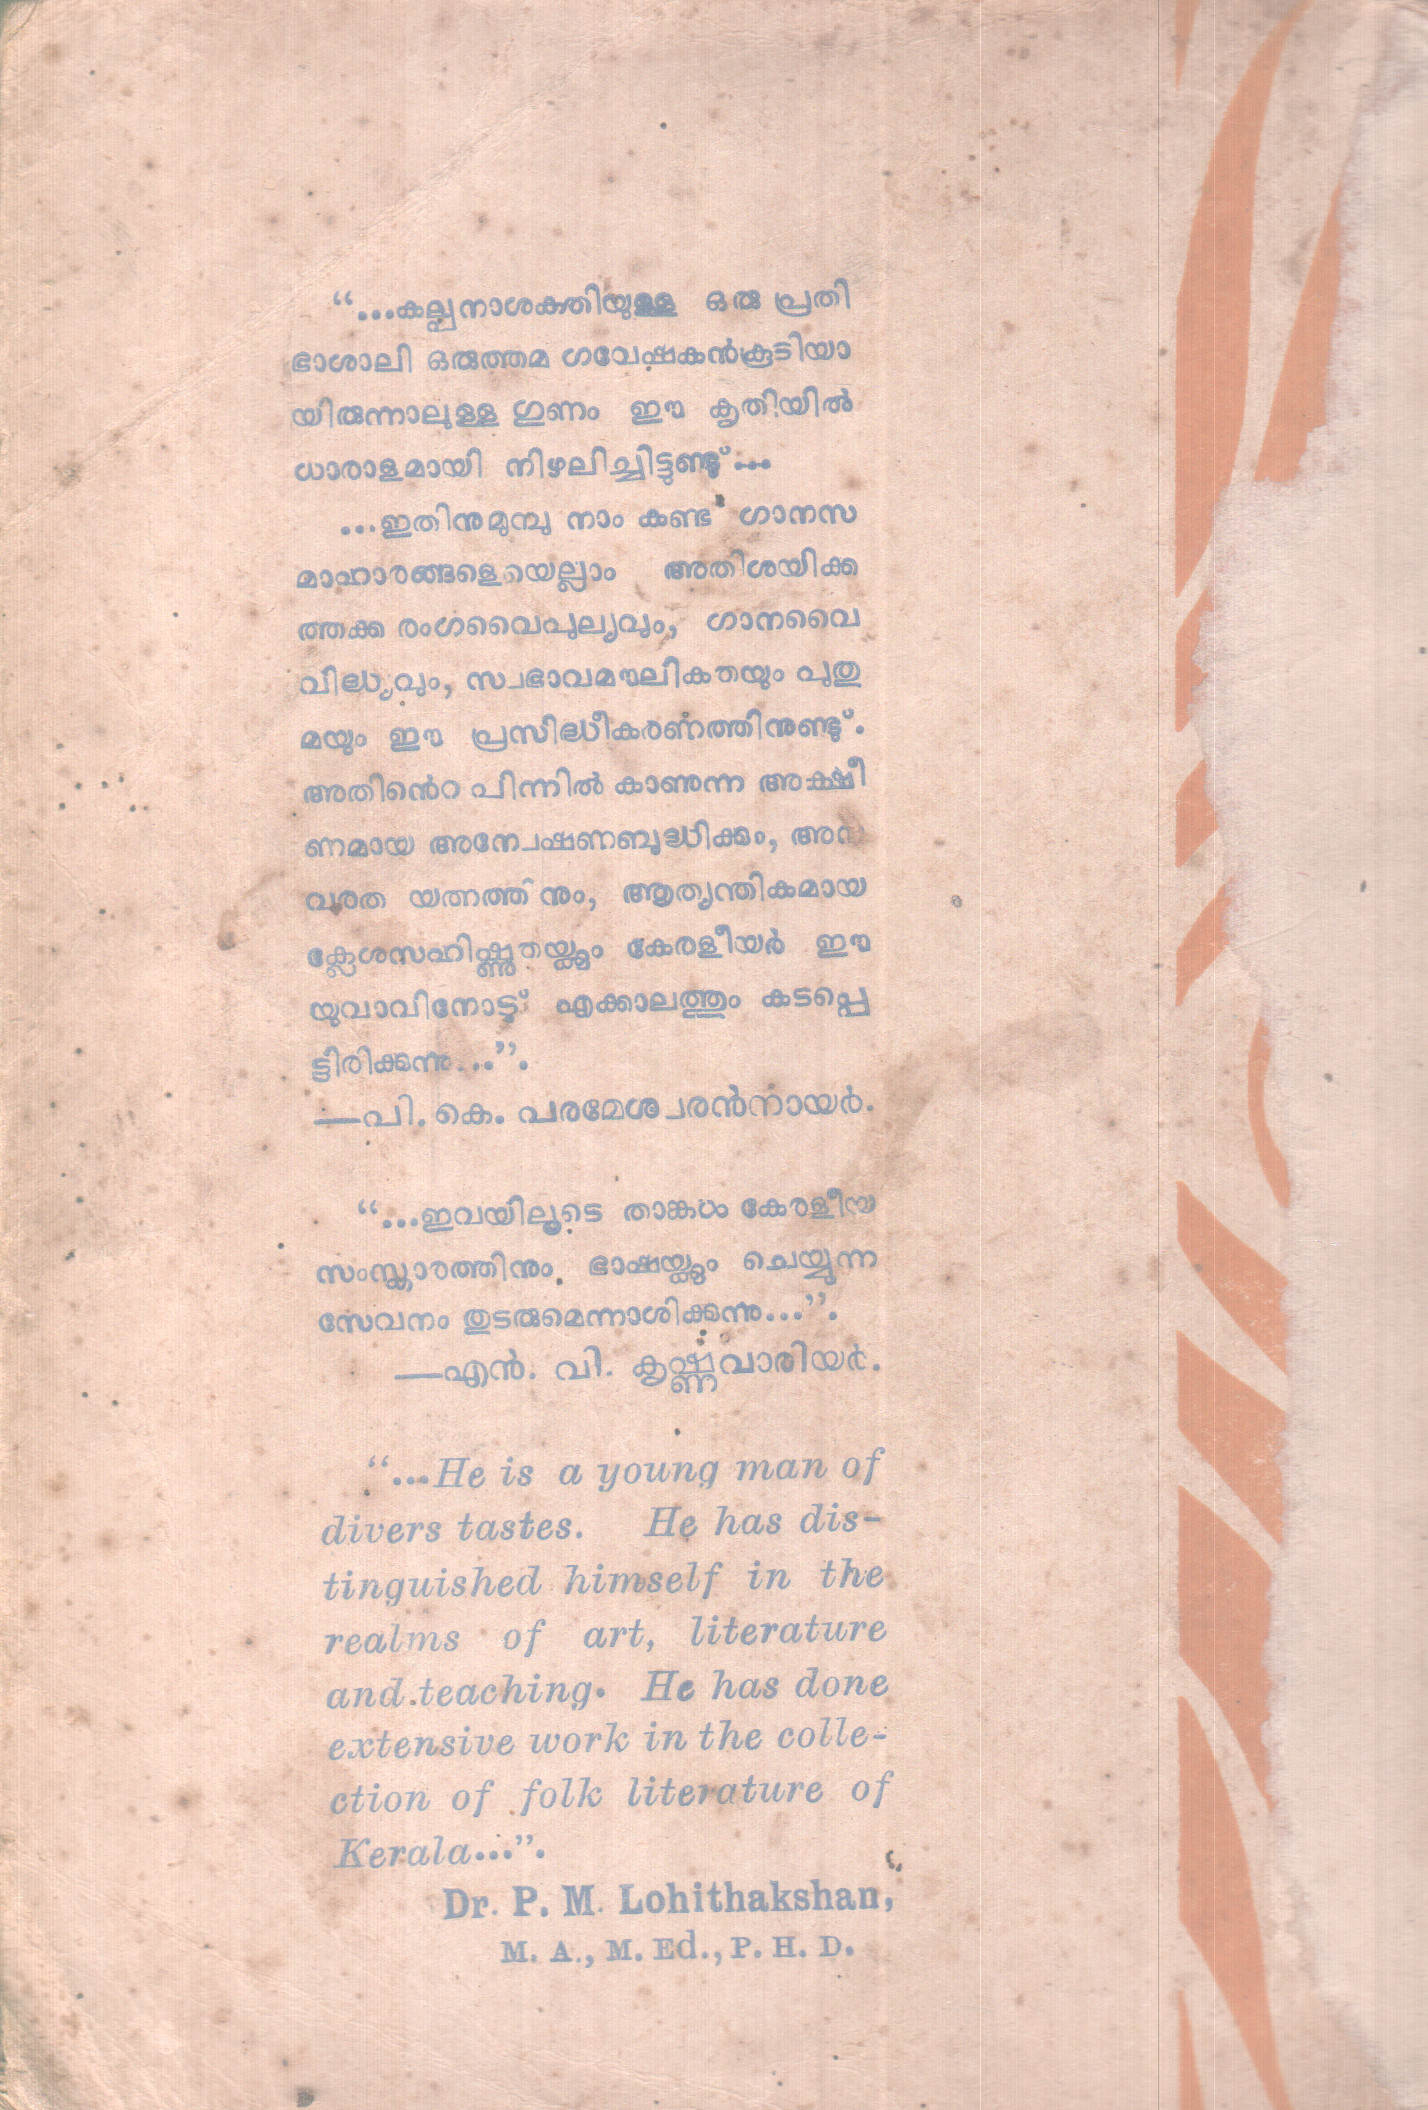 “...കല്പനാശക്തിയുള്ള ഒരു പ്രതി
ഭാശാലി ഒരുത്തമ ഗവേഷകൻകൂടിയാ
യിരുന്നാലുള്ള ഗുണം ഈ കൃതിയിൽ
ധാരാളമായി നിഴലിച്ചിട്ടുണ്ടു്...
...ഇതിനുമുമ്പു നാം കണ്ട ഗാനസ
മാഹാരങ്ങളെയെല്ലാം അതിശയിക്ക
ത്തക്ക രംഗവൈപുല്യവും, ഗാനവൈ
വിദ്ധ്യവും, സ്വഭാവമൗലികതയും പുതു
മയും ഈ പ്രസിദ്ധീകരണത്തിനുണ്ടു്.
അതിന്റെ പിന്നിൽ കാണുന്ന അക്ഷീ
ണമായ അന്വേഷണബുദ്ധിക്കും, അന
വരത യത്നത്തിനും, ആത്യന്തികമായ
ക്ലേശസഹിഷ്ണുതയ്ക്കും കേരളീയർ ഈ
യുവാവിനോടു് എക്കാലത്തും കടപ്പെ
ട്ടിരിക്കുന്നു...”.
—പി. കെ. പരമേശ്വരൻനായർ.
“...ഇവയിലൂടെ താങ്കൾ കേരളീയ
സംസ്ക്കാരത്തിനും ഭാഷയ്ക്കും ചെയ്യുന്ന
സേവനം തുടരുമെന്നാശിക്കുന്നു...”.
—എൻ. വി. കൃഷ്ണവാരിയർ.
“...He is a young man of
divers tastes. He has dis-
tinguished himself in the
realms of art, literature
and teaching. He has done
extensive work in the colle-
ction of folk literature of
Kerala...”.
Dr. P. M. Lohithakshan,
M. A., M. Ed., P. H. D.